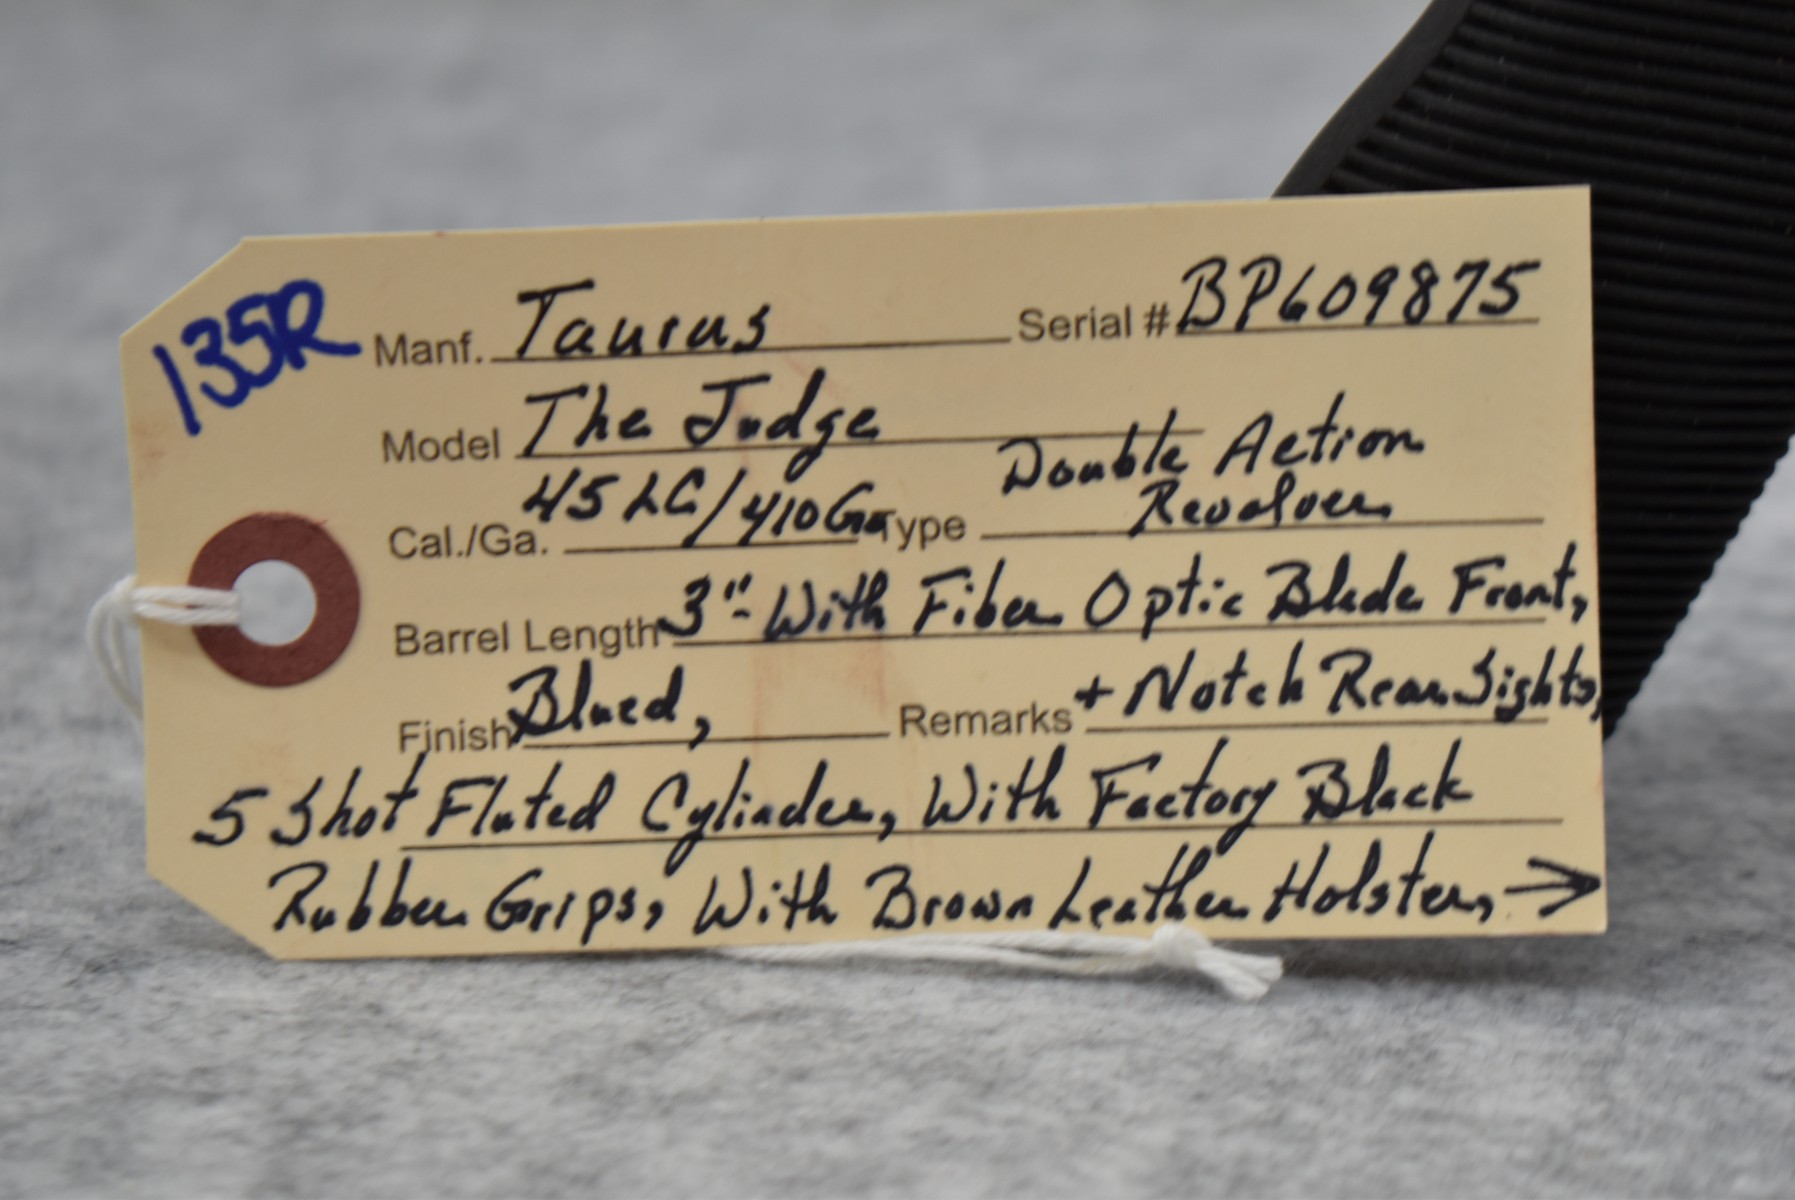 135R
Manf. Taurus Serial # BP609875
Model The Judge
Cal./Ga. 45 LC/410Ga Type Double Action Revolver
Barrel Length 3" - With Fiber Optic Blade Front,
Finish Blued, Remarks + Notch Rear Sights,
5 Shot Fluted Cylinder, With Factory Black
Rubber Grips, With Brown Leather Holster, →